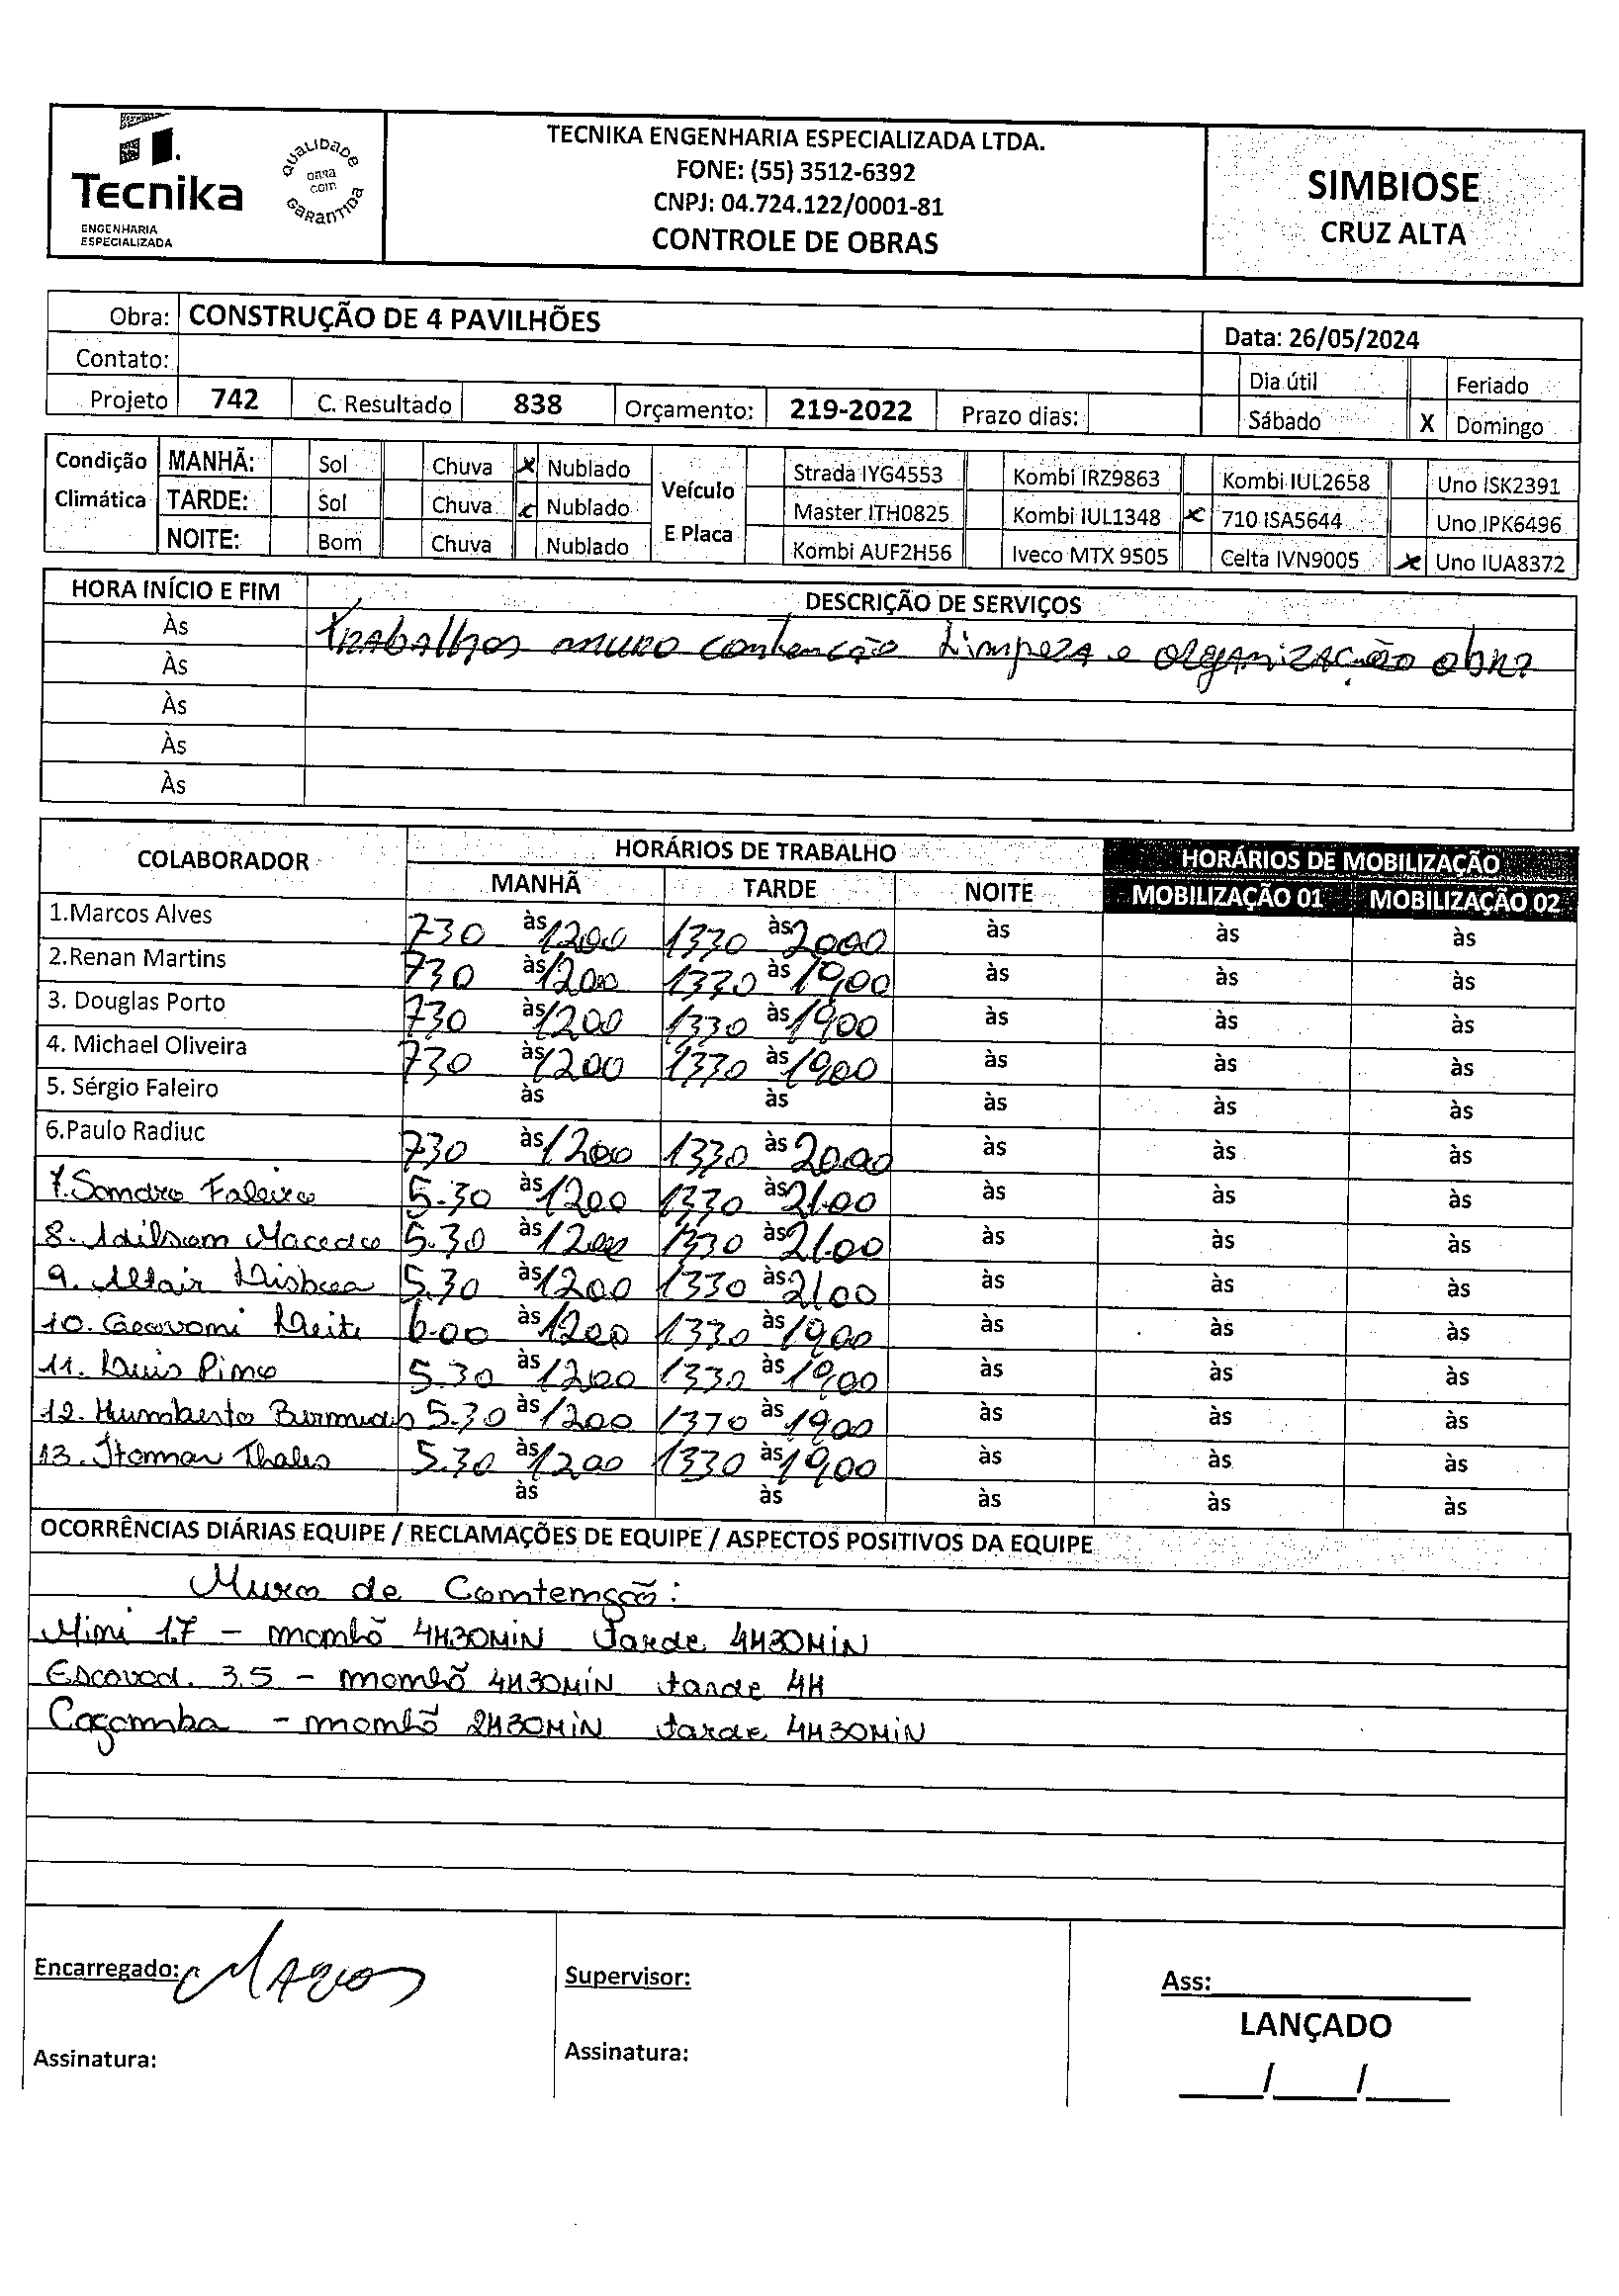 Tecnika
ENGENHARIA
ESPECIALIZADA
QUALIDADE
COM
GARANTIDA
TECNIKA ENGENHARIA ESPECIALIZADA LTDA.
FONE: (55) 3512-6392
CNPJ: 04.724.122/0001-81
CONTROLE DE OBRAS
SIMBIOSE
CRUZ ALTA
Obra: CONSTRUÇÃO DE 4 PAVILHÕES
Data: 26/05/2024
Contato:
Dia útil Feriado
Projeto 742 C. Resultado 838 Orçamento: 219-2022 Prazo dias:
Sábado X Domingo
Condição MANHÃ: Sol Chuva X Nublado Veículo Strada IYG4553 Kombi IRZ9863 Kombi IUL2658 Uno ISK2391
Climática TARDE: Sol Chuva X Nublado E Placa Master ITH0825 Kombi IUL1348 X 710 ISA5644 Uno IPK6496
NOITE: Bom Chuva Nublado Kombi AUF2H56 Iveco MTX 9505 Celta IVN9005 X Uno IUA8372
HORA INÍCIO E FIM DESCRIÇÃO DE SERVIÇOS
Às Trabalhos muro contenção Limpeza e organização obra
Às
Às
Às
Às
COLABORADOR HORÁRIOS DE TRABALHO HORÁRIOS DE MOBILIZAÇÃO
MANHÃ TARDE NOITE MOBILIZAÇÃO 01 MOBILIZAÇÃO 02
1.Marcos Alves 730 às 1200 1330 às 2000 às às às
2.Renan Martins 730 às 1200 1330 às 1900 às às às
3. Douglas Porto 730 às 1200 1330 às 1900 às às às
4. Michael Oliveira 730 às 1200 1330 às 1900 às às às
5. Sérgio Faleiro às às às às às
6.Paulo Radiuc 730 às 1200 1330 às 2000 às às às
7. Sandro Faleiro 5.30 às 1200 1330 às 21.00 às às às
8. Adilson Macedo 5.30 às 1200 1330 às 21.00 às às às
9. Altair Lisboa 5.30 às 1200 1330 às 2100 às às às
10. Geovani Leite 6.00 às 1200 1330 às 1900 às às às
11. Luis Pino 5.30 às 1200 1330 às 1900 às às às
12. Humberto Bermudes 5.30 às 1200 1330 às 1900 às às às
13. Itamar Thales 5.30 às 1200 1330 às 1900 às às às
às às às às às
OCORRÊNCIAS DIÁRIAS EQUIPE / RECLAMAÇÕES DE EQUIPE / ASPECTOS POSITIVOS DA EQUIPE
Muro de Contenção:
Mini 1.7 - manhã 4H30MIN tarde 4H30MIN
Escavad. 3.5 - manhã 4H30MIN tarde 4H
Caçamba - manhã 2H30MIN tarde 4H30MIN
Encarregado: Marcos
Supervisor:
Ass:
LANÇADO
Assinatura:
Assinatura:
___/___/___